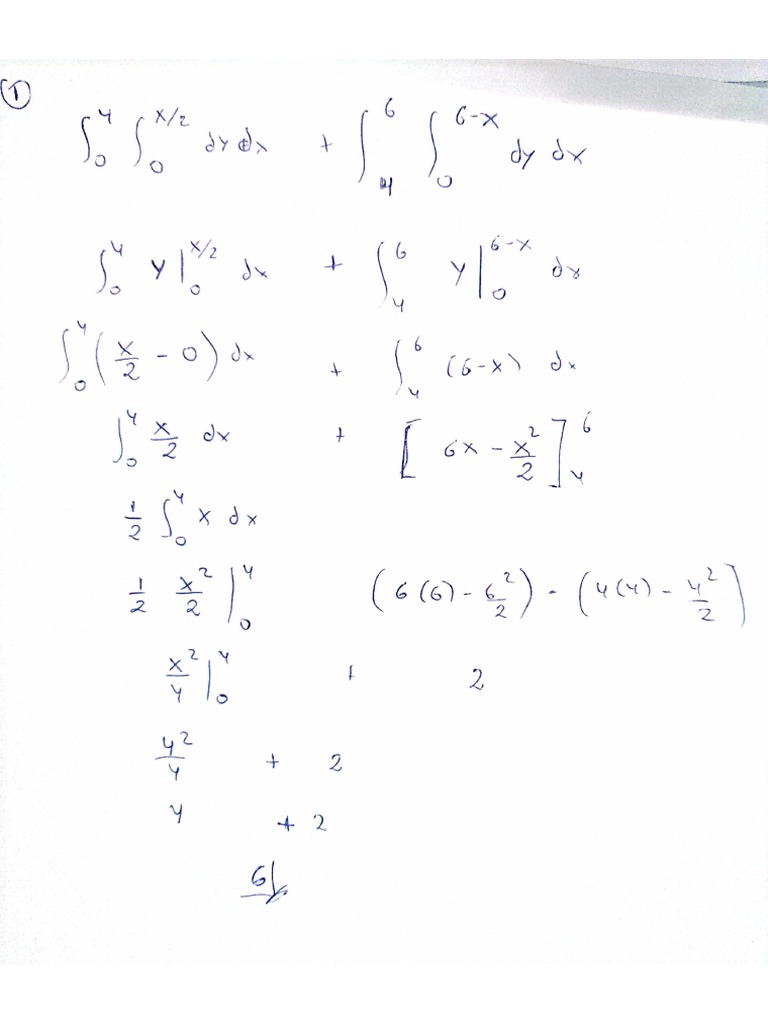 ①
∫₀⁴ ∫₀^(x/2) dy dx + ∫₄⁶ ∫₀^(6-x) dy dx
∫₀⁴ y|₀^(x/2) dx + ∫₄⁶ y|₀^(6-x) dx
∫₀⁴ (x/2 - 0) dx + ∫₄⁶ (6-x) dx
∫₀⁴ x/2 dx + [6x - x²/2]₄⁶
1/2 ∫₀⁴ x dx
1/2 x²/2 |₀⁴ (6(6) - 6²/2) - (4(4) - 4²/2)
x²/4 |₀⁴ + 2
4²/4 + 2
4 + 2
6